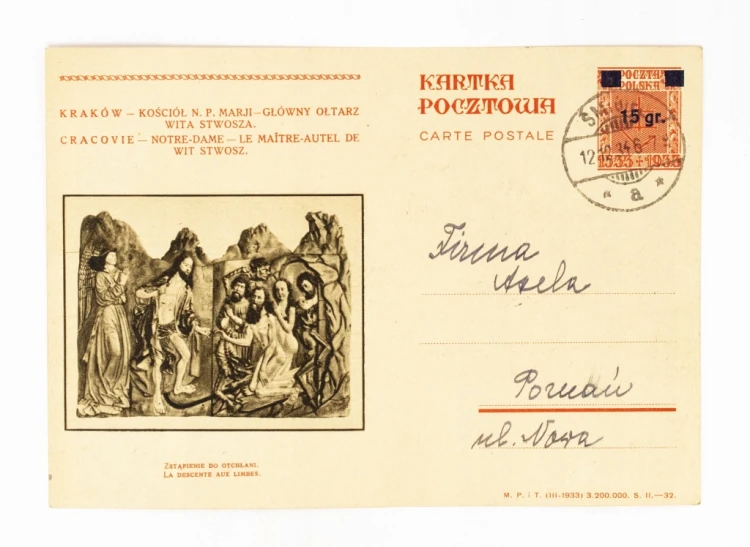 KRAKÓW — KOŚCIÓŁ N. P. MARJI — GŁÓWNY OŁTARZ
WITA STWOSZA.
CRACOVIE — NOTRE-DAME — LE MAÎTRE-AUTEL DE
WIT STWOSZ.
ZSTĄPIENIE DO OTCHŁANI.
LA DESCENTE AUX LIMBES.
KARTKA
POCZTOWA
CARTE POSTALE
POCZTA
POLSKA
15 gr.
1533+1933
a
Firma
Asela
Poznań
ul. Nowa
M. P. i T. (III-1933) 3.200.000. S. II.—32.